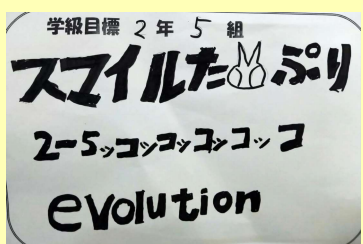 学級目標 2年 5組
スマイルた ぷり
2-5ッコッコッコッコッコ
evolution